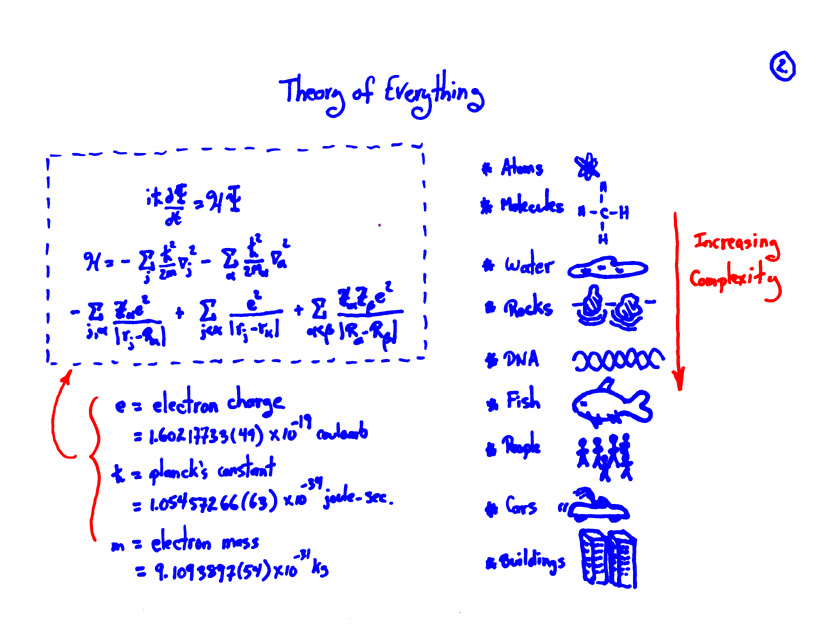 2
Theory of Everything
iℏ ∂Ψ/∂t = ℋΨ
ℋ = - Σ_j ℏ²/2m ∇_j² - Σ_α ℏ²/2M_α ∇_α²
- Σ_j,α Z_α e²/|r_j - R_α| + Σ_j<k e²/|r_j - r_k| + Σ_α<β Z_α Z_β e²/|R_α - R_β|
e = electron charge
= 1.60217733(49) × 10^-19 coulomb
ℏ = planck's constant
= 1.05457266(63) × 10^-34 joule-sec.
m = electron mass
= 9.1093897(54) × 10^-31 kg
* Atoms
* Molecules
H
H - C - H
H
* Water
* Rocks
* DNA
* Fish
* People
* Cars
* Buildings
Increasing
Complexity